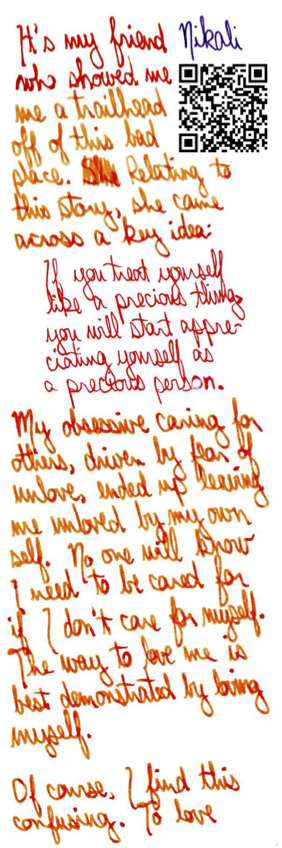 It's my friend Nikali
who showed me
me a trailhead
off of this bad
place. Relating to
this story, she came
across a key idea:
If you treat yourself
like a precious thing
you will start appre-
ciating yourself as
a precious person.
My obsessive caring for
others, driven by fear of
unlove, ended up leaving
me unloved by my own
self. No one will know
I need to be cared for
if I don't care for myself.
The way to love me is
best demonstrated by loving
myself.
Of course, I find this
confusing. To love